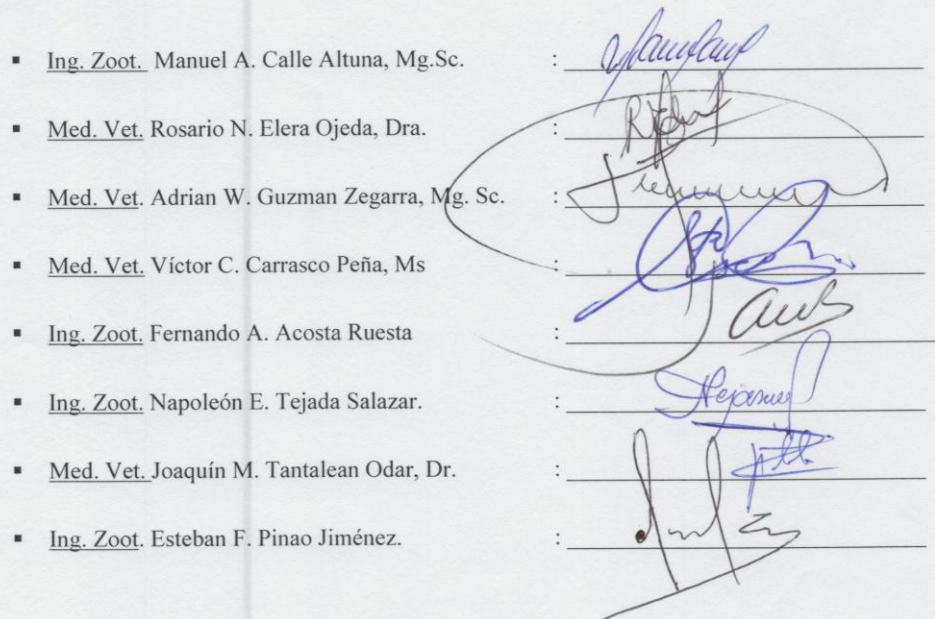 ▪ Ing. Zoot. Manuel A. Calle Altuna, Mg.Sc. :
▪ Med. Vet. Rosario N. Elera Ojeda, Dra. :
▪ Med. Vet. Adrian W. Guzman Zegarra, Mg. Sc. :
▪ Med. Vet. Víctor C. Carrasco Peña, Ms :
▪ Ing. Zoot. Fernando A. Acosta Ruesta :
▪ Ing. Zoot. Napoleón E. Tejada Salazar. :
▪ Med. Vet. Joaquín M. Tantalean Odar, Dr. :
▪ Ing. Zoot. Esteban F. Pinao Jiménez. :